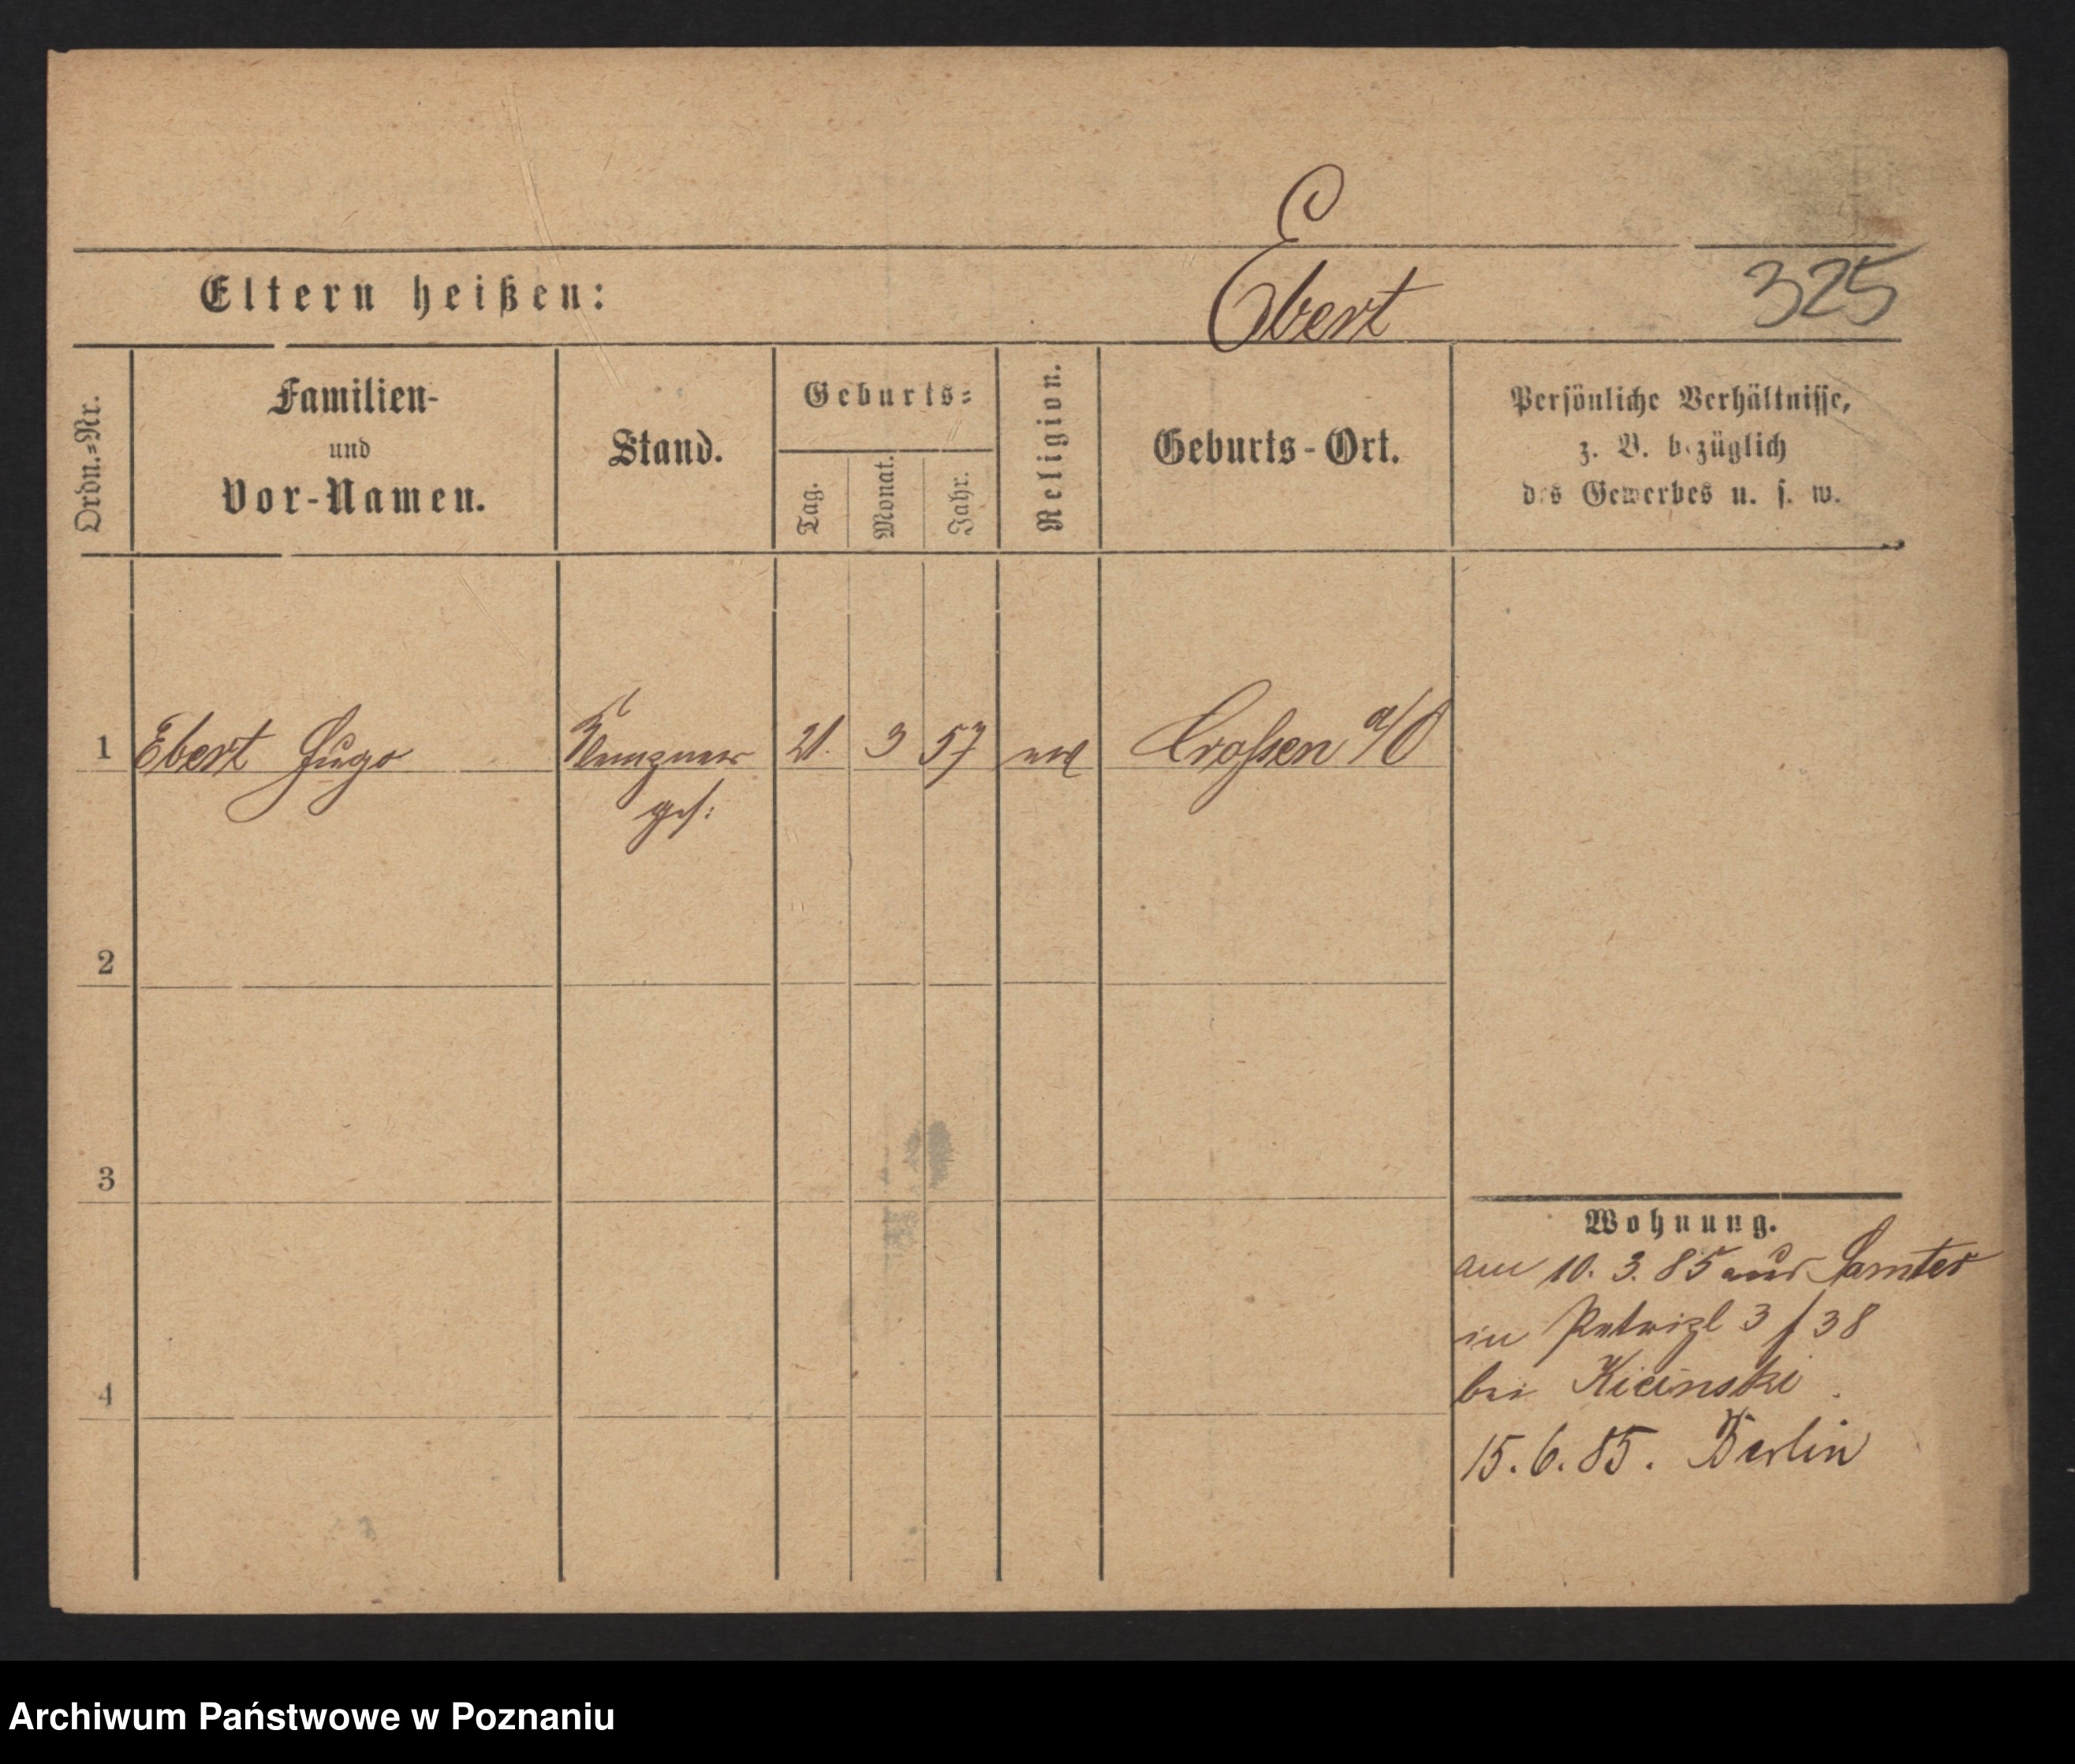 E
Eltern heißen:
Ebert
325
Ordn.=Nr.
Familien-
und
Vor-Namen.
Stand.
Geburts=
Tag.
Monat.
Jahr.
Religion.
Geburts-Ort.
Persönliche Verhältnisse,
z. B. bezüglich
des Gewerbes u. s. w.
1
Ebert Hugo
Klempner
ges:
21.
3
57
ev
Crossen a/O
2
3
4
Wohnung.
am 10. 3. 85 aus Samter
in 3/38
bei Kicinski
15. 6. 85. Berlin
Archiwum Państwowe w Poznaniu